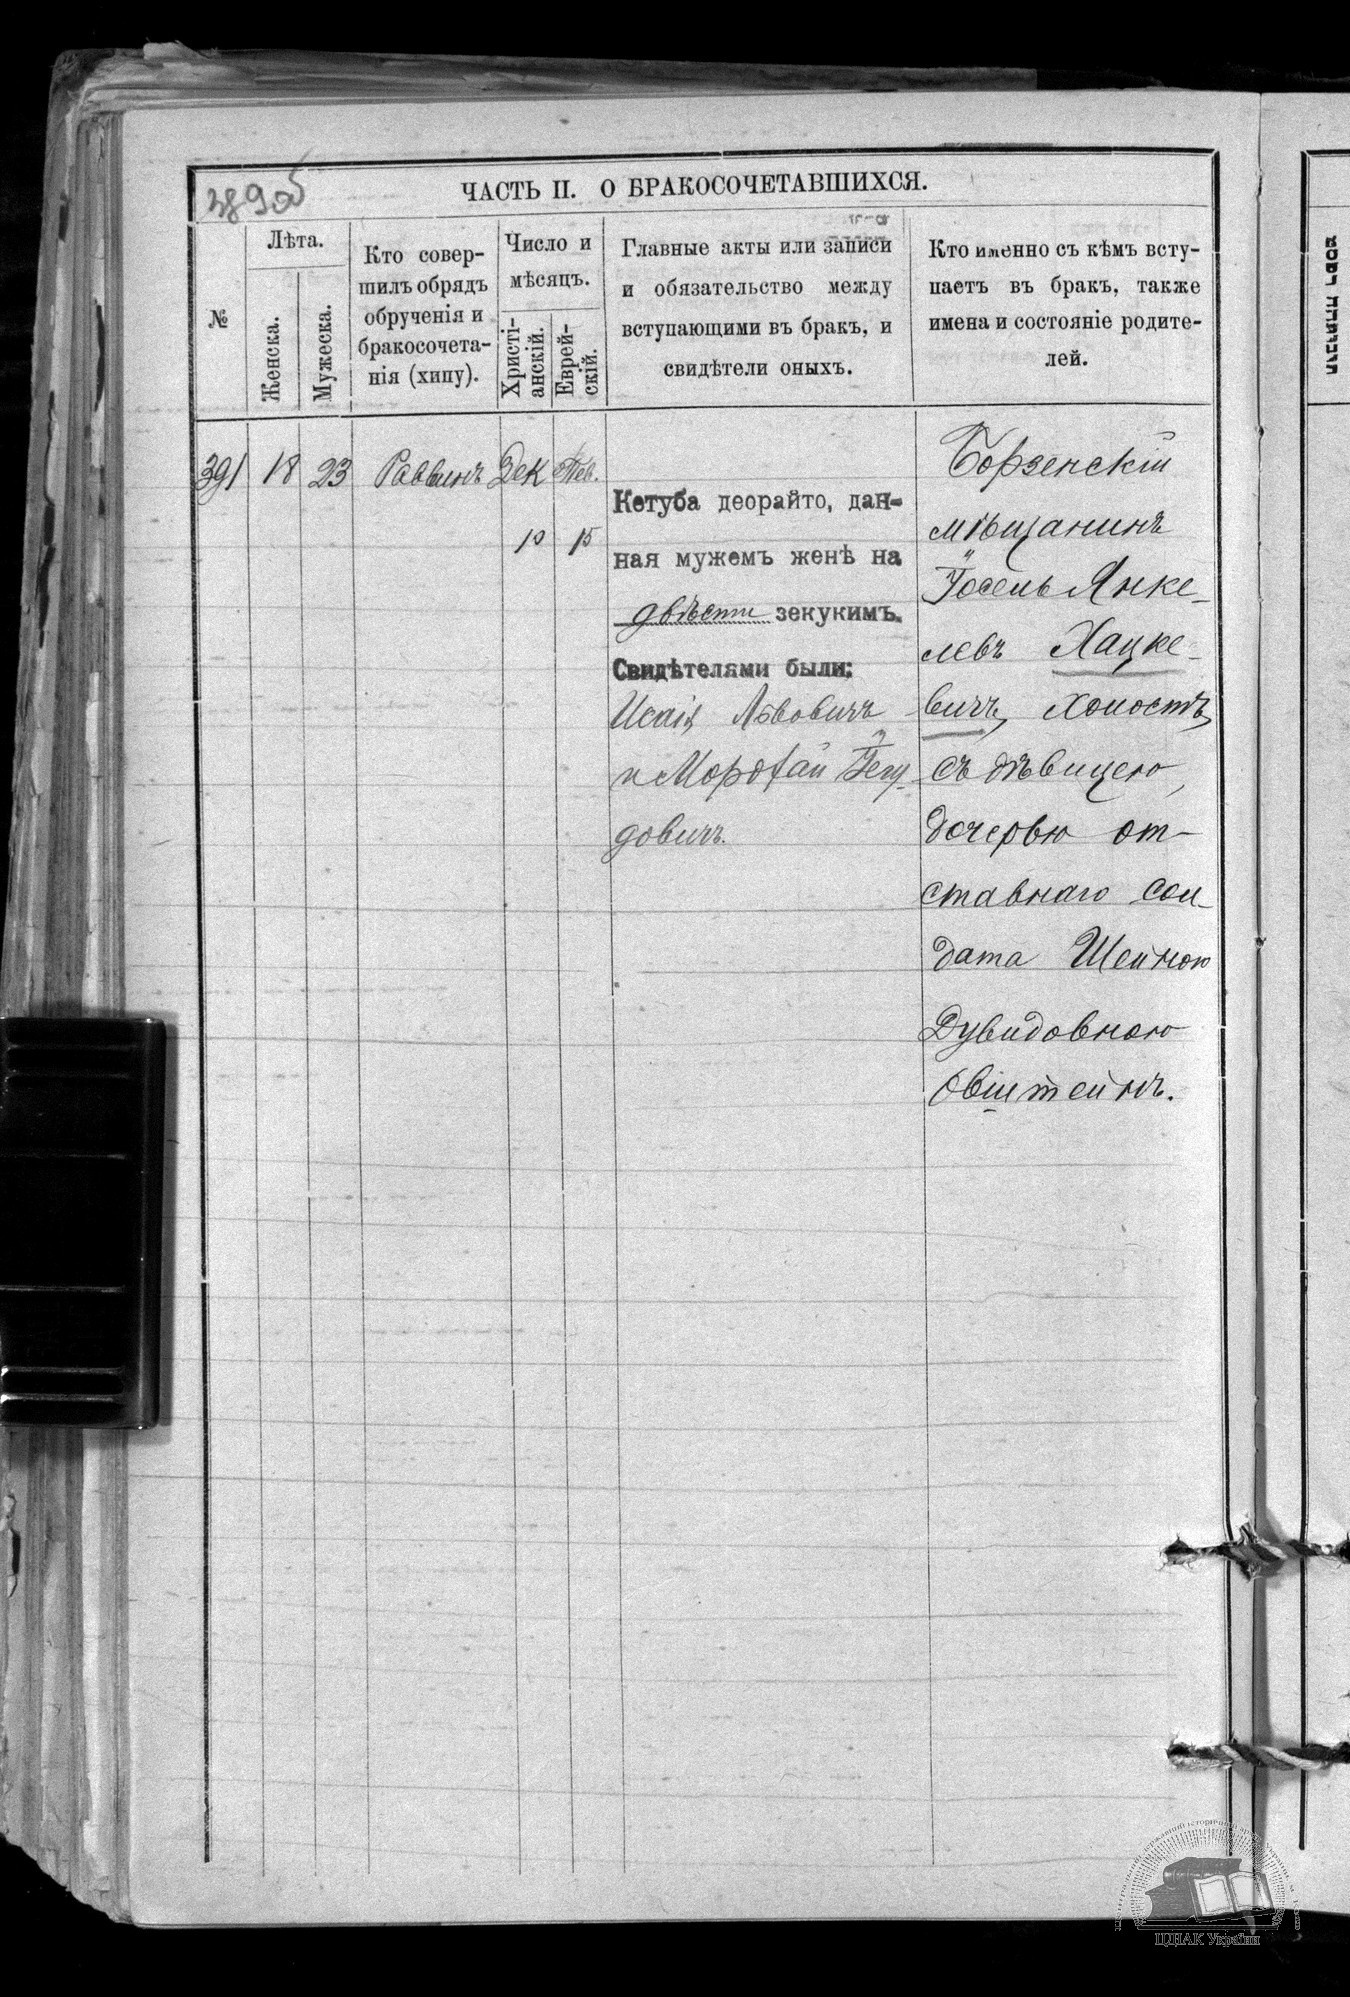 389об
ЧАСТЬ II. О БРАКОСОЧЕТАВШИХСЯ.
№
Лѣта.
Женска.
Мужеска.
Кто совер-
шилъ обрядъ
обрученія и
бракосочета-
нія (хипу).
Число и
мѣсяцъ.
Христі-
анскій.
Еврей-
скій.
Главные акты или записи
и обязательство между
вступающими въ бракъ, и
свидѣтели оныхъ.
Кто именно съ кѣмъ всту-
паетъ въ бракъ, также
имена и состояніе родите-
лей.
391 18 23 Раввинъ Дек Тев.
10 15
Кетуба деорайто, дан-
ная мужемъ женѣ на
двѣсти зекукимъ.
Свидѣтелями были:
Исаія Львовичъ
и Мордхай Іегу-
довичъ.
Борзенскій
мѣщанинъ
Іосель Янке-
левъ Хацке-
вичъ, холостъ,
съ дѣвицею,
дочерью от-
ставнаго сол-
дата Шейною
Дувидовною
Овштейнъ.
ЦДІАК України